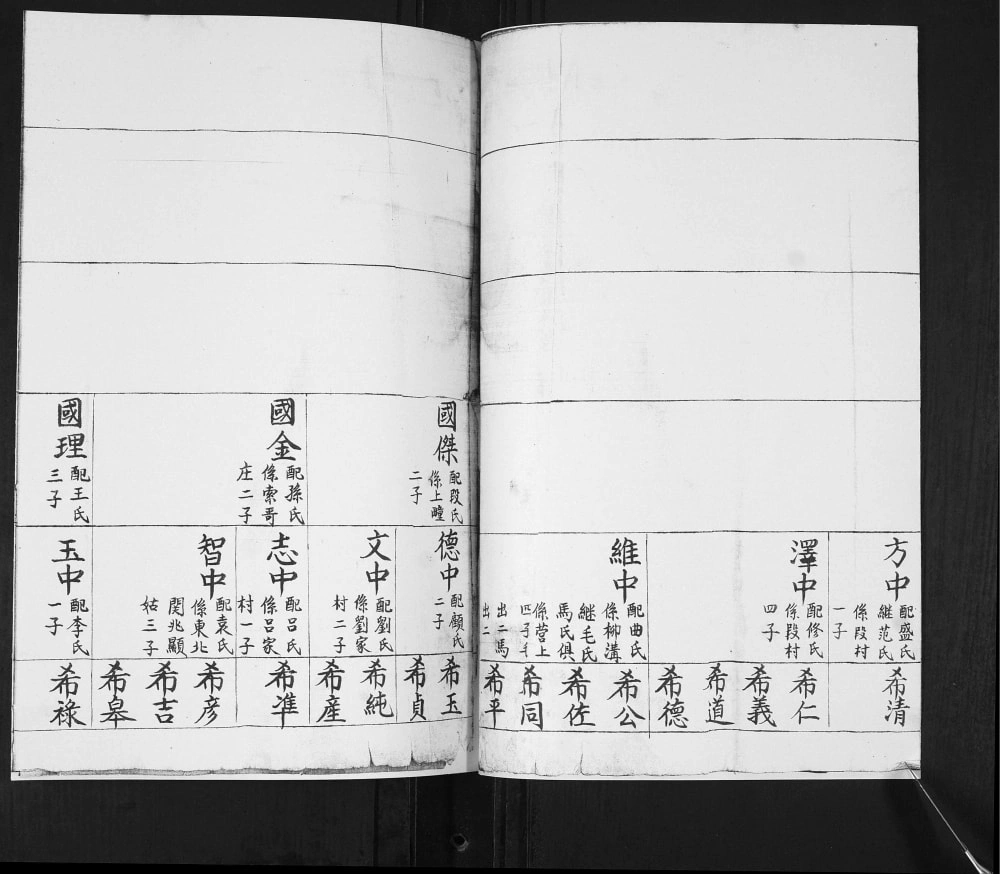 方中
配盛氏
継范氏
係段村
一子
澤中
配修氏
係段村
四子
維中
配曲氏
係柳溝
継毛氏
馬氏俱
係营上
四子毛
出二馬
出二
希清
希仁
希義
希道
希德
希公
希佐
希同
希平
國傑
配段氏
係上疃
二子
國金
配孫氏
係索哥
庄二子
國理
配王氏
三子
德中
配顧氏
二子
文中
配劉氏
係劉家
村二子
志中
配吕氏
係吕家
村一子
智中
配袁氏
係東北
関兆顯
姑三子
玉中
配李氏
一子
希玉
希貞
希純
希産
希準
希彦
希吉
希皋
希祿